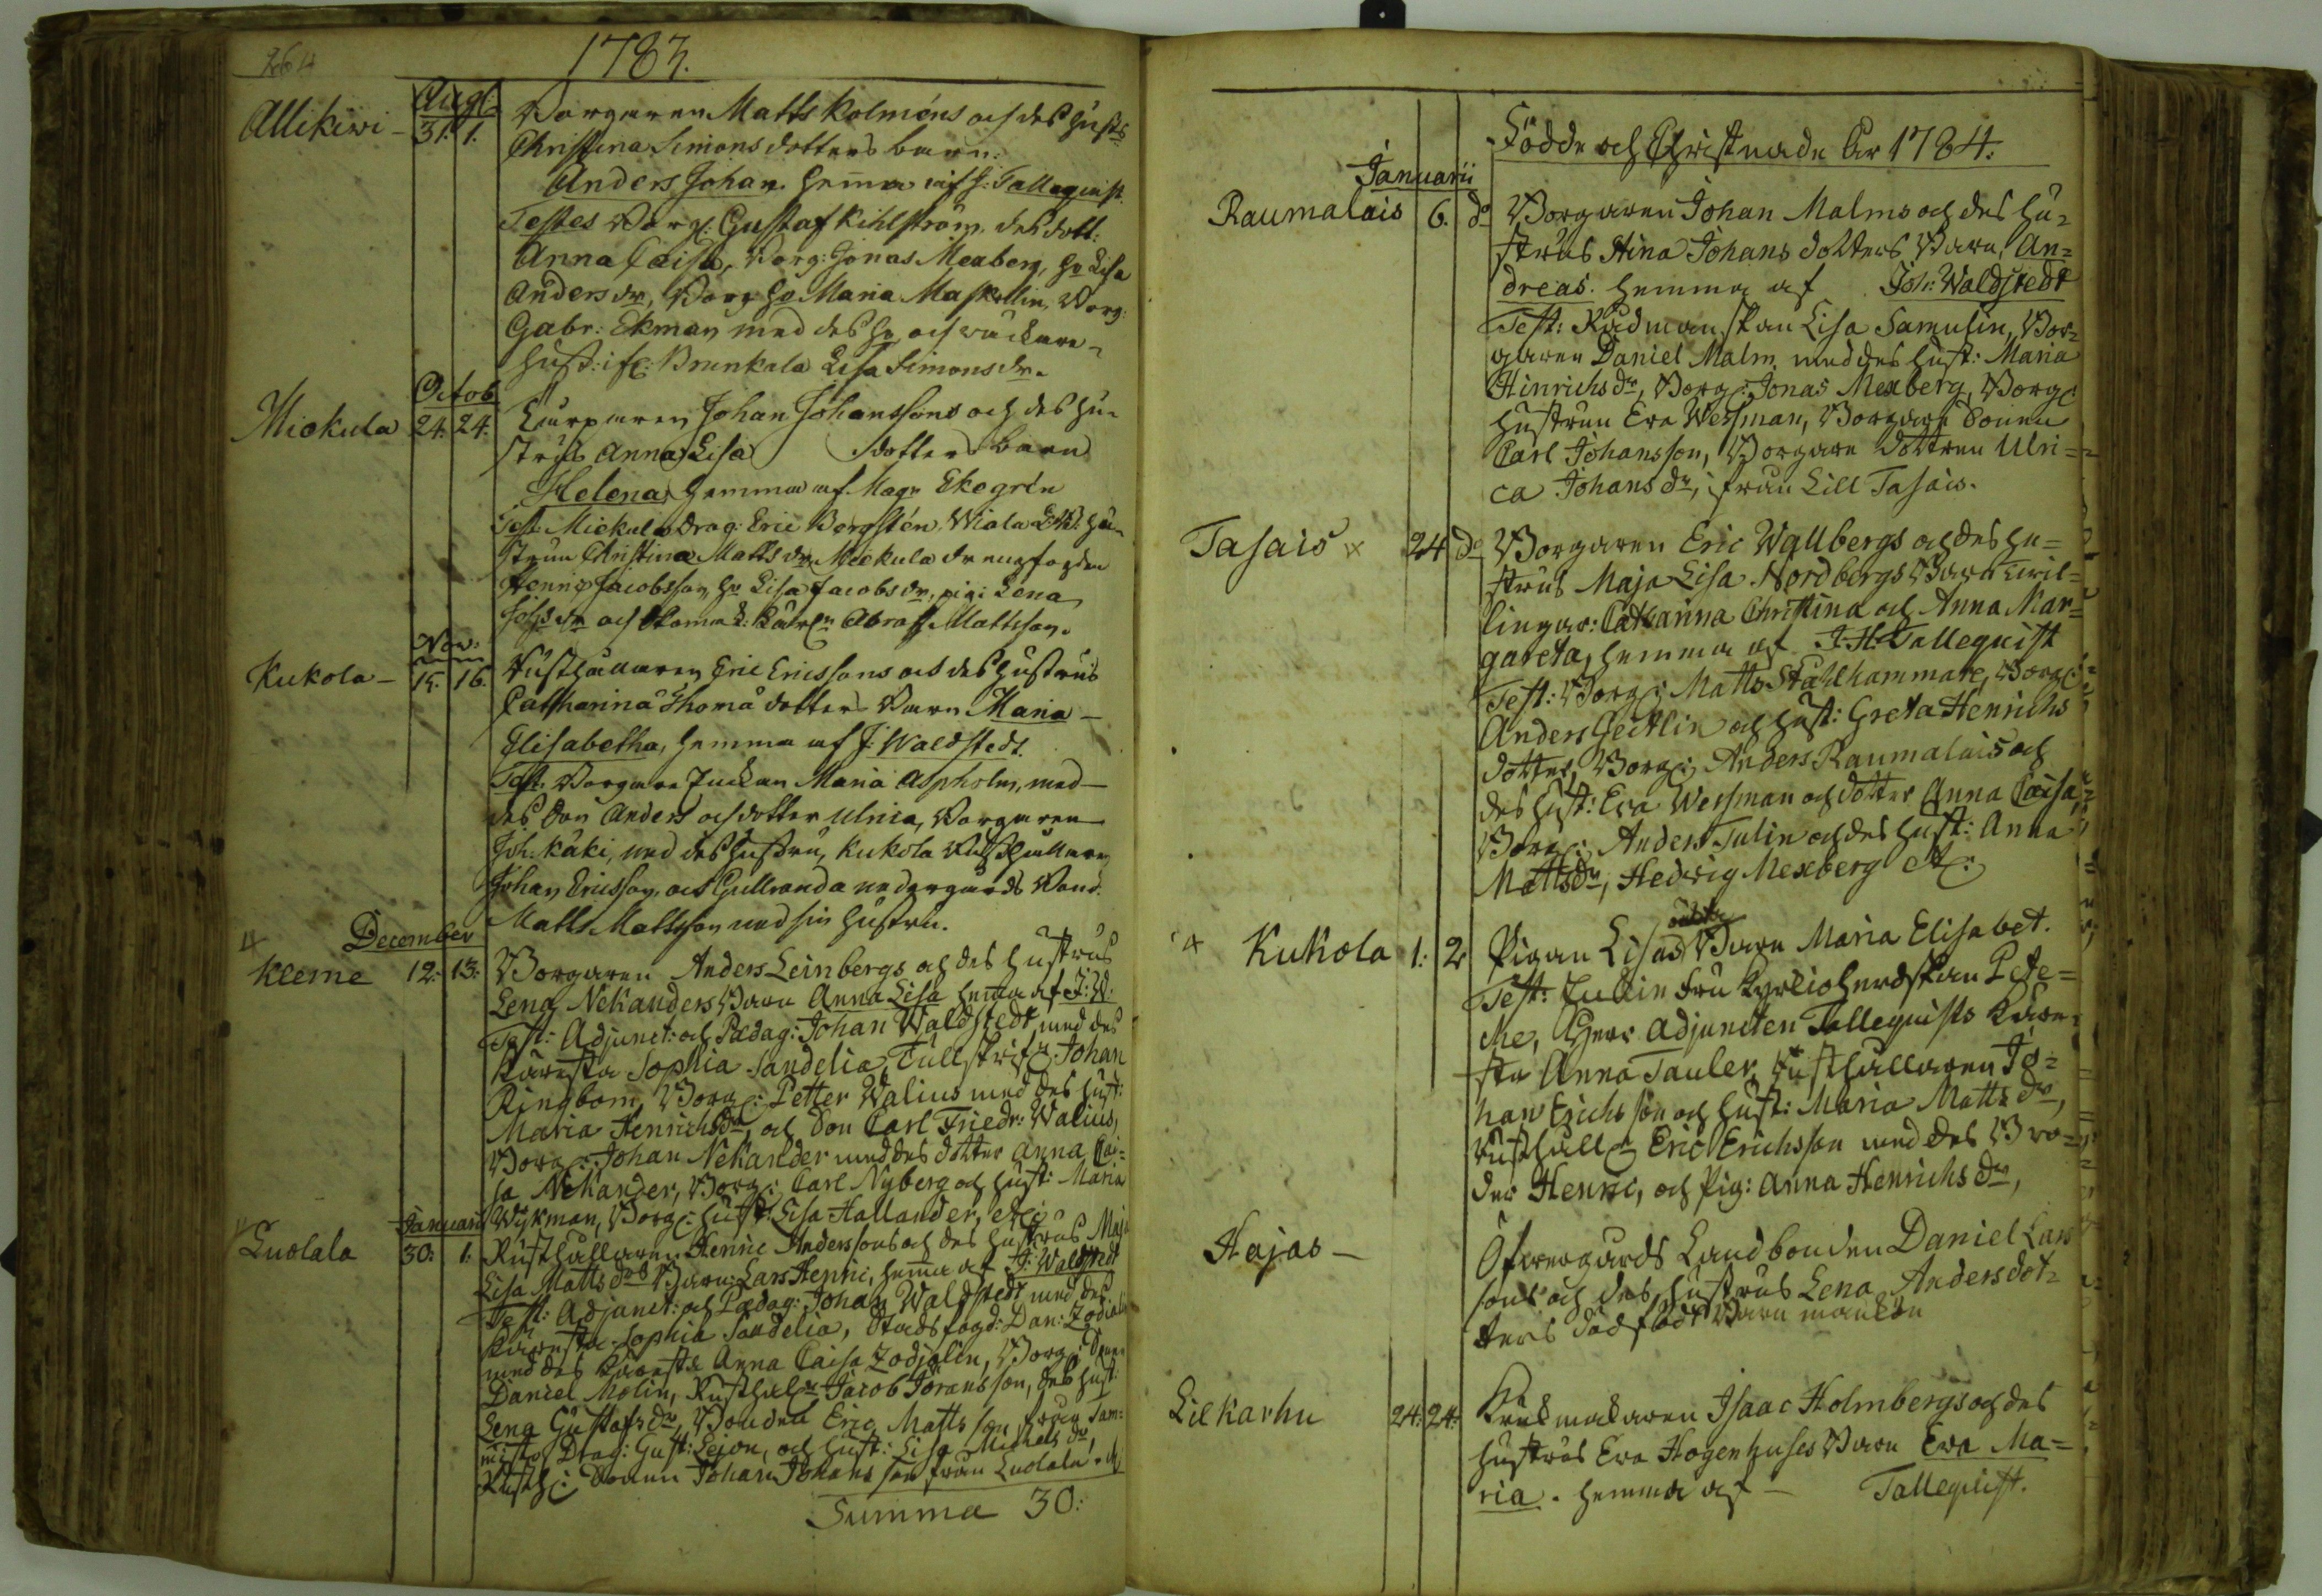 264
1783.
Aug:
Allikiwi – 31. 1. Borgaren Matts Kolmóns och des hust:
Christina Simons dotters barn.
Anders Johan. hema af J: Tallequist.
Testes Borg: Gustaf Kihlström, des dott:
Anna Caisa, Borg: Jonas Mexberg, hu Lisa
Anders dr, Borg hu Maria Maskellin, Borg:
Gabr: Ekman med des hu och
hust: Brunkala Lisa Simons dr.
Octob
Miekula 24. 24. Johan Johanssons och des hu-
strus Anna Lisa dotters barn
Helena, hemma af Magn Ekegrén
Test: Miekula Drag: Eric Bergstén, Wiala hu-
strun Christina Matts dr Miekula drengfogden
Henric Jacobsson, hu Lisa Jacobs dr, pig: Lena
och Abrah. Mattsson.
Nov:
Kukola – 15. 16. Rusthållaren Eric Ericssons och des hustrus
Catharina Thomæ dotters Barn Maria
Elisabetha, hemma af J: Waldstedt.
Test: Borgare Enckan Maria Aspholm, med
des Son Anders och dotter Ulrica, Borgaren
Joh: Käki, med des hustru, Kukola Rusthållaren
Johan Ericsson, och Gullranda nedergårds Bond.
Matts Mattsson med sin hustru.
December
Kleme 12. 13. Borgaren Anders Leinbergs och des hustrus
Lena Nekanders Barn Anna Lisa hema af J: W.
Test: Adjunct: och Pædag: Johan Waldstedt, med des
Käresta Sophia Sandelia, Tullskrifv: Johan
Ringbom, Borg: Petter Walius med des hust:
Maria Henrichs dr, och Son Carl Friedr: Walius,
Borg: Johan Nekander med des dotter Anna Cai=
sa Nekander, Borg: Carl Nyberg och hust: Maria
Wijkman, Borg: hust: Lisa Hallander, etc:
Januarii
Luolala 30. 1. Rusthållaren Henric Anderssons och des hustrus Maja
Lisa Matts drs Barn: Lars Henric, hema af J: Waldstedt
Test: Adjunct: och Pædag: Johan Waldstedt med des
Käresta Sophia Sandelia, Stadsfogd: Dan: Zodiali
med des Käresta Anna Caisa Zodjalin, Borg: Sonen
Daniel Molin, Rusthålr Jacob Jöransson, des hust:
Lena Gustafs dr, Bonden Eric Mattsson från Tam=
misto, Drag: Gust: Lejon, och hust: Lisa Michels dr,
Rusth: Sonen Johan Johansson från Luolala. etc
Summa 30:
Födde och Christnade År 1784.
Januarii
Raumalais 6. do Borgaren Johan Malms och des hu=
strus Stina Johans dotters Barn, An=
dreas. hemma af Joh: Waldstedt
Test: Rådmanskan Lisa Samulin, Bor=
garen Daniel Malm, med des hust: Maria
Hinrichs dr, Borg: Jonas Mexberg, Borg:
hustrun Eva Wessman, Borgare Sonen
Carl Johansson, Borgare dottren Ulri=
ca Johans dr, ifrån Lill Tasais.
Tasais x 24 do Borgaren Eric Wallbergs och des hu=
strus Maja Lisa Nordbergs Barn twil=
lingar: Catharina Christina och Anna Mar=
gareta, hemma af J. H. Tallequist
Test: Borg: Matts Ståhlhammare, Borg:
Anders Geitlin och hust: Greta Henrichs
dotter, Borg: Anders Raumalais och
des hust: Eva Wessman och dotter Anna Caisa,
Borg: Anders Tulin och des hust: Anna
Matts dr, Hedwig Mexberg etc:
x Kukola 1: 2. Pigan Lisas oäkta Barn Maria Elisabet.
Test: Enkie Fru Kyrkioherdskan Pete=
che, Herr Adjuncten Tallequists Käre=
sta Anna Tauler, Rusthållaren Jo=
han Erichsson och hust: Maria Matts dr,
Rusthåll: Eric Erichsson med des Bro=
der Henric, och Pig: Anna Henrichs dr,
Hajas – Öfvergårds Landbonden Daniel Lars
sons och des hustrus Lena Andersdot=
ters dödfödt Barn mankön
Lilkarhu 24. 24. Krukmakaren Isaac Holmbergs och des
hustrus Eva Hogenhuses Barn Eva Ma=
ria. hemma af – Tallequist.